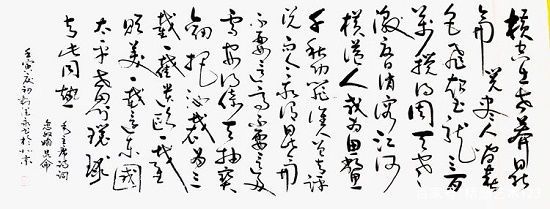 横空出世莽昆
仑阅尽人间春
色飞起玉龙三百
万搅得周天寒
彻夏日消溶江河
横溢人或为鱼鳖
千秋功罪谁人曾与评
说而今我谓昆仑
不要这高不要这多
雪安得倚天抽宝
剑把汝裁为三
截一截遗欧一截
赠美一截还东国
太平世界环球
同此凉热
毛主席诗词
念奴娇昆仑
壬寅夏初书于北京